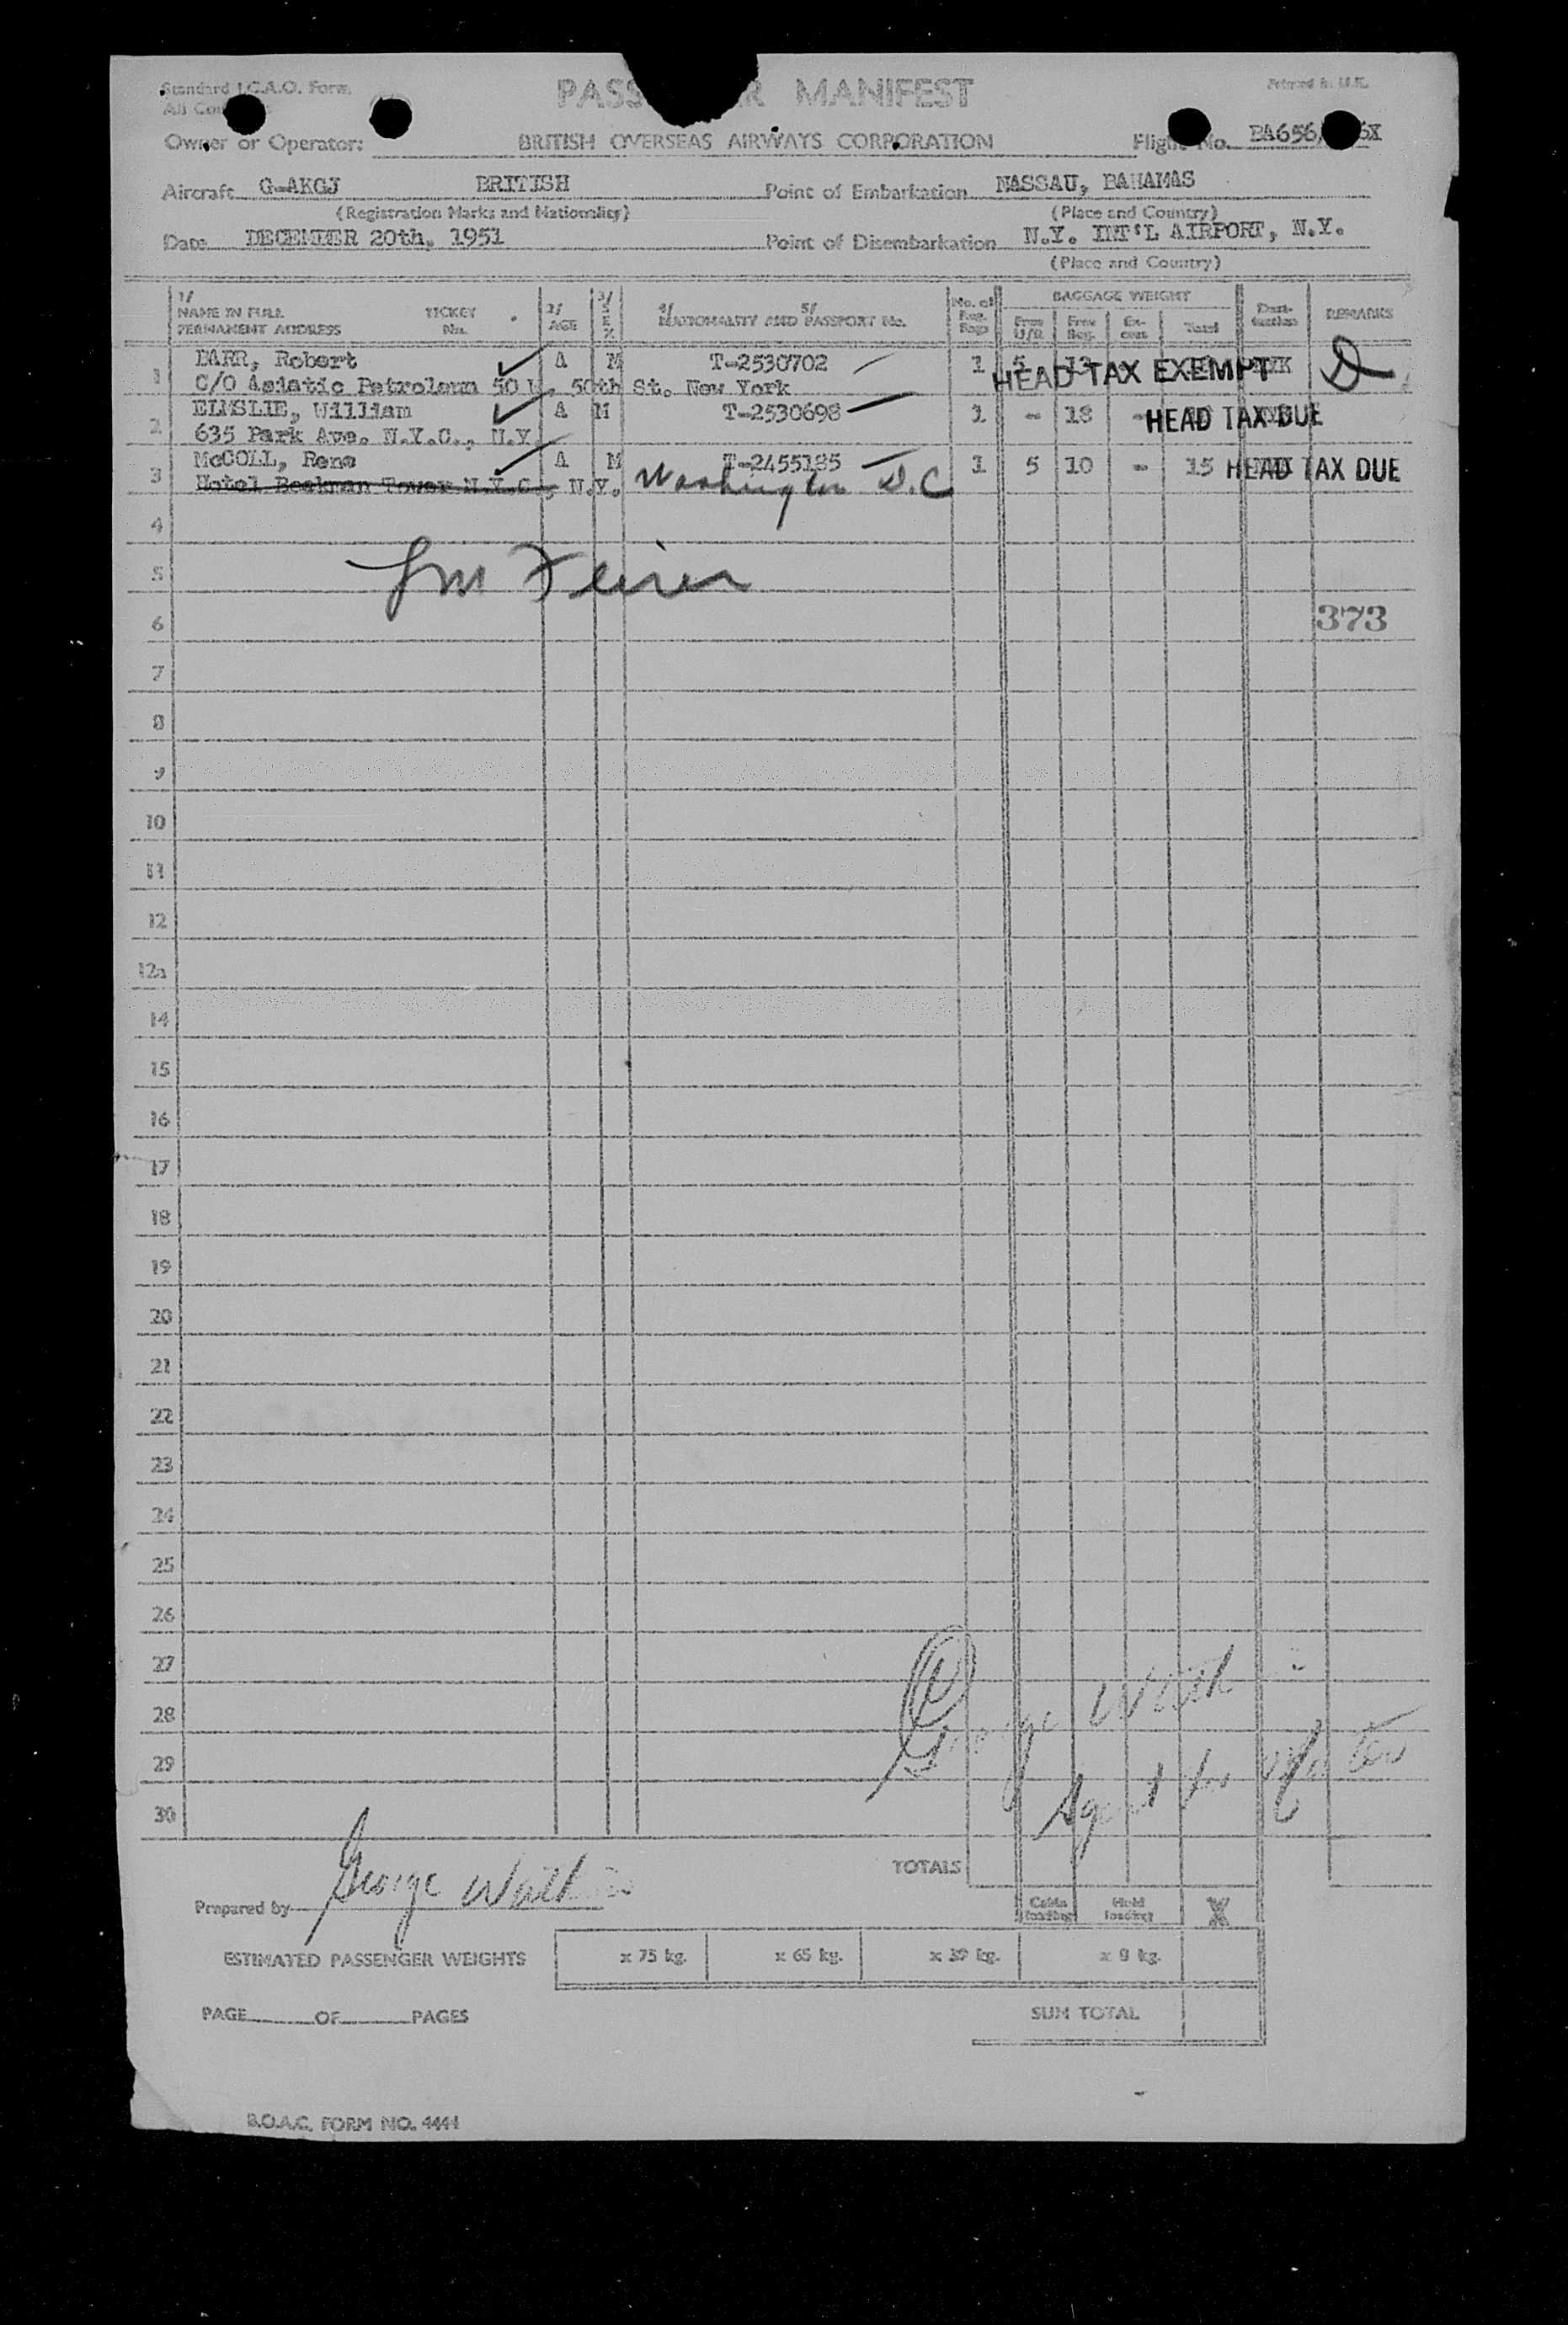 Standard I.C.A.O. Form.
PASS R MANIFEST
Printed in U.K.
All
Owner or Operator: BRITISH OVERSEAS AIRWAYS CORPORATION Flight No. BA656/ 6X
Aircraft G-AKGJ BRITISH Point of Embarkation NASSAU, BAHAMAS
(Registration Marks and Nationality) (Place and Country)
Date DECEMBER 20th, 1951 Point of Disembarkation N.Y. INT'L AIRPORT, N.Y.
(Place and Country)
1/ NAME IN FULL PERMANENT ADDRESS TICKET No. 2/ AGE 3/ SEX 4/ 5/ NATIONALITY AND PASSPORT No. No. of Reg. Bags BAGGAGE WEIGHT Free U/R Free Reg. Ex-cess Total Dest-ination REMARKS
1 BARR, Robert A M T-2530702 1 5 13 HEAD TAX EXEMPT
C/O Asiatic Petroleum 50 W. 50th St. New York
2 ELMSLIE, William A M T-2530698 1 - 18 - HEAD TAX DUE
635 Park Ave. N.Y.C., N.Y.
3 McCOLL, Rene A M T-2455185 1 5 10 - 15 HEAD TAX DUE
Hotel Beekman Tower N.Y.C., N.Y. Washington D.C
4
5
6 373
7
8
9
10
11
12
12a
14
15
16
17
18
19
20
21
22
23
24
25
26
27
28 George
29 Agent for
30
TOTALS
Prepared by George
Cabin loading Hold loading X
ESTIMATED PASSENGER WEIGHTS x 75 kg. x 65 kg. x 39 kg. x 8 kg.
PAGE OF PAGES SUM TOTAL
B.O.A.C. FORM NO. 4441